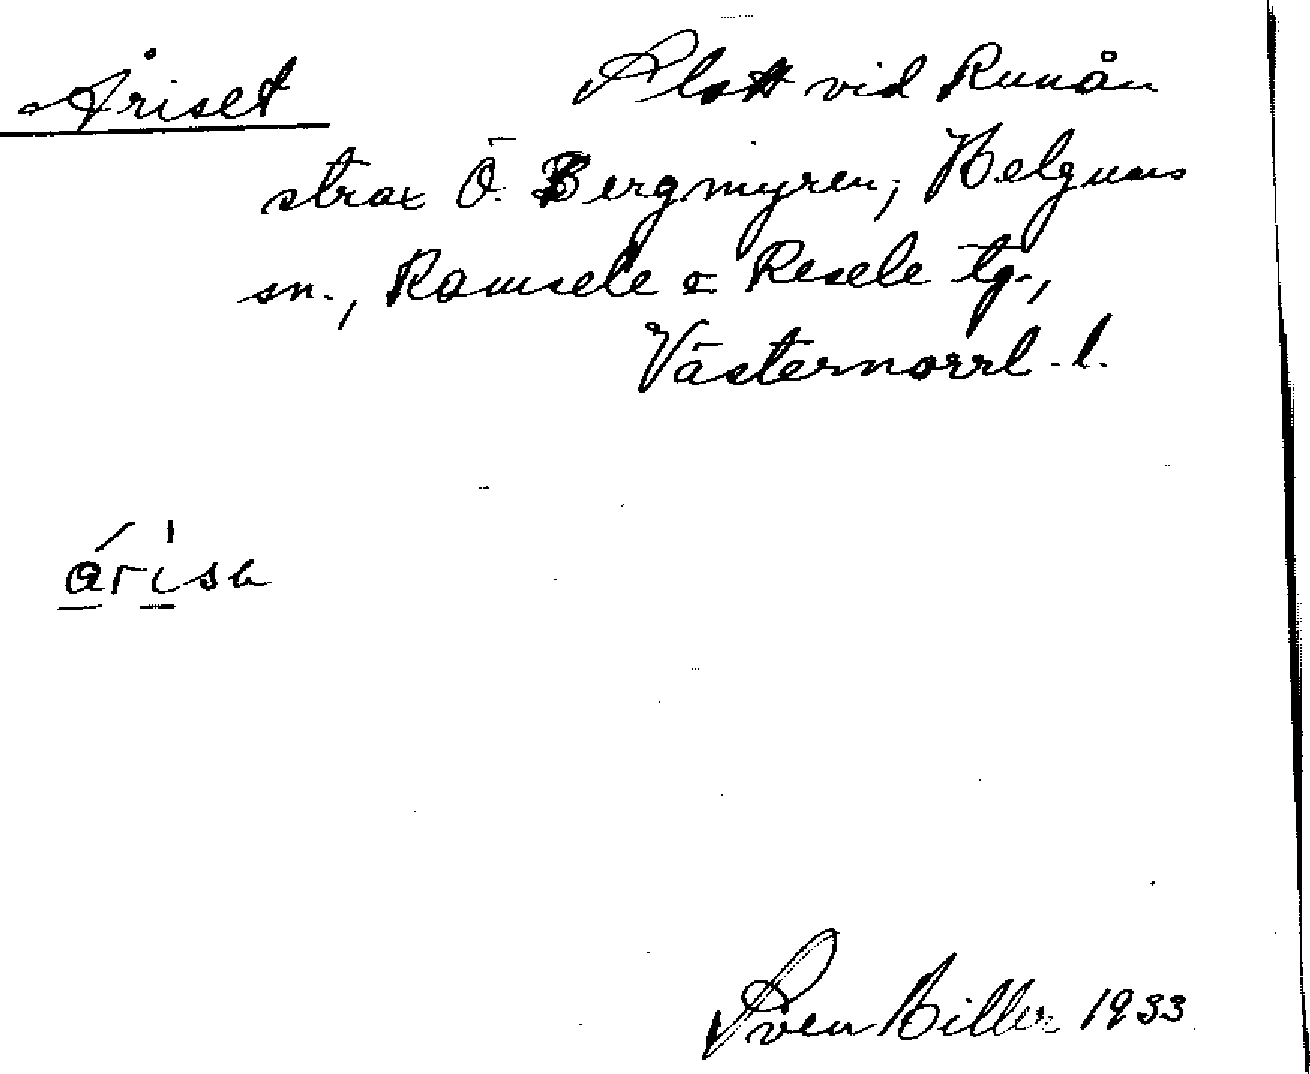 Åriset Slått vid Runån
strax Ö. Bergmyren, Helgums
sn., Ramsele o Resele tg.,
Västernorrl. l.
årisa
Sven Hiller 1933